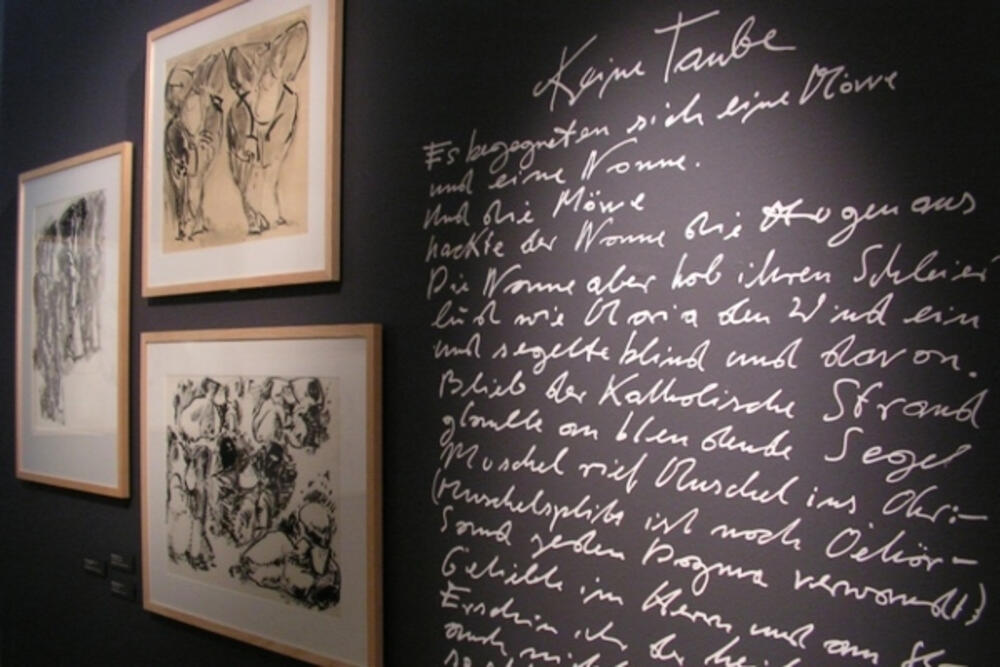 Keine Taube
Es begegneten sich eine Möwe
und eine Nonne.
Und die Möwe
hackte der Nonne die Augen aus
Die Nonne aber hob ihren Schleier
lud wie Maria den Wind ein
und segelte blind und davon.
Blieb der Katholische Strand
glaubte an blendende Segel
Muschel rief Muschel ins Ohr:–
(Muschelsplitt ist noch Gehör–
Sand jedem Dogma verwandt)
Geliebte im Herrn und am
Erschien ihr der
auch